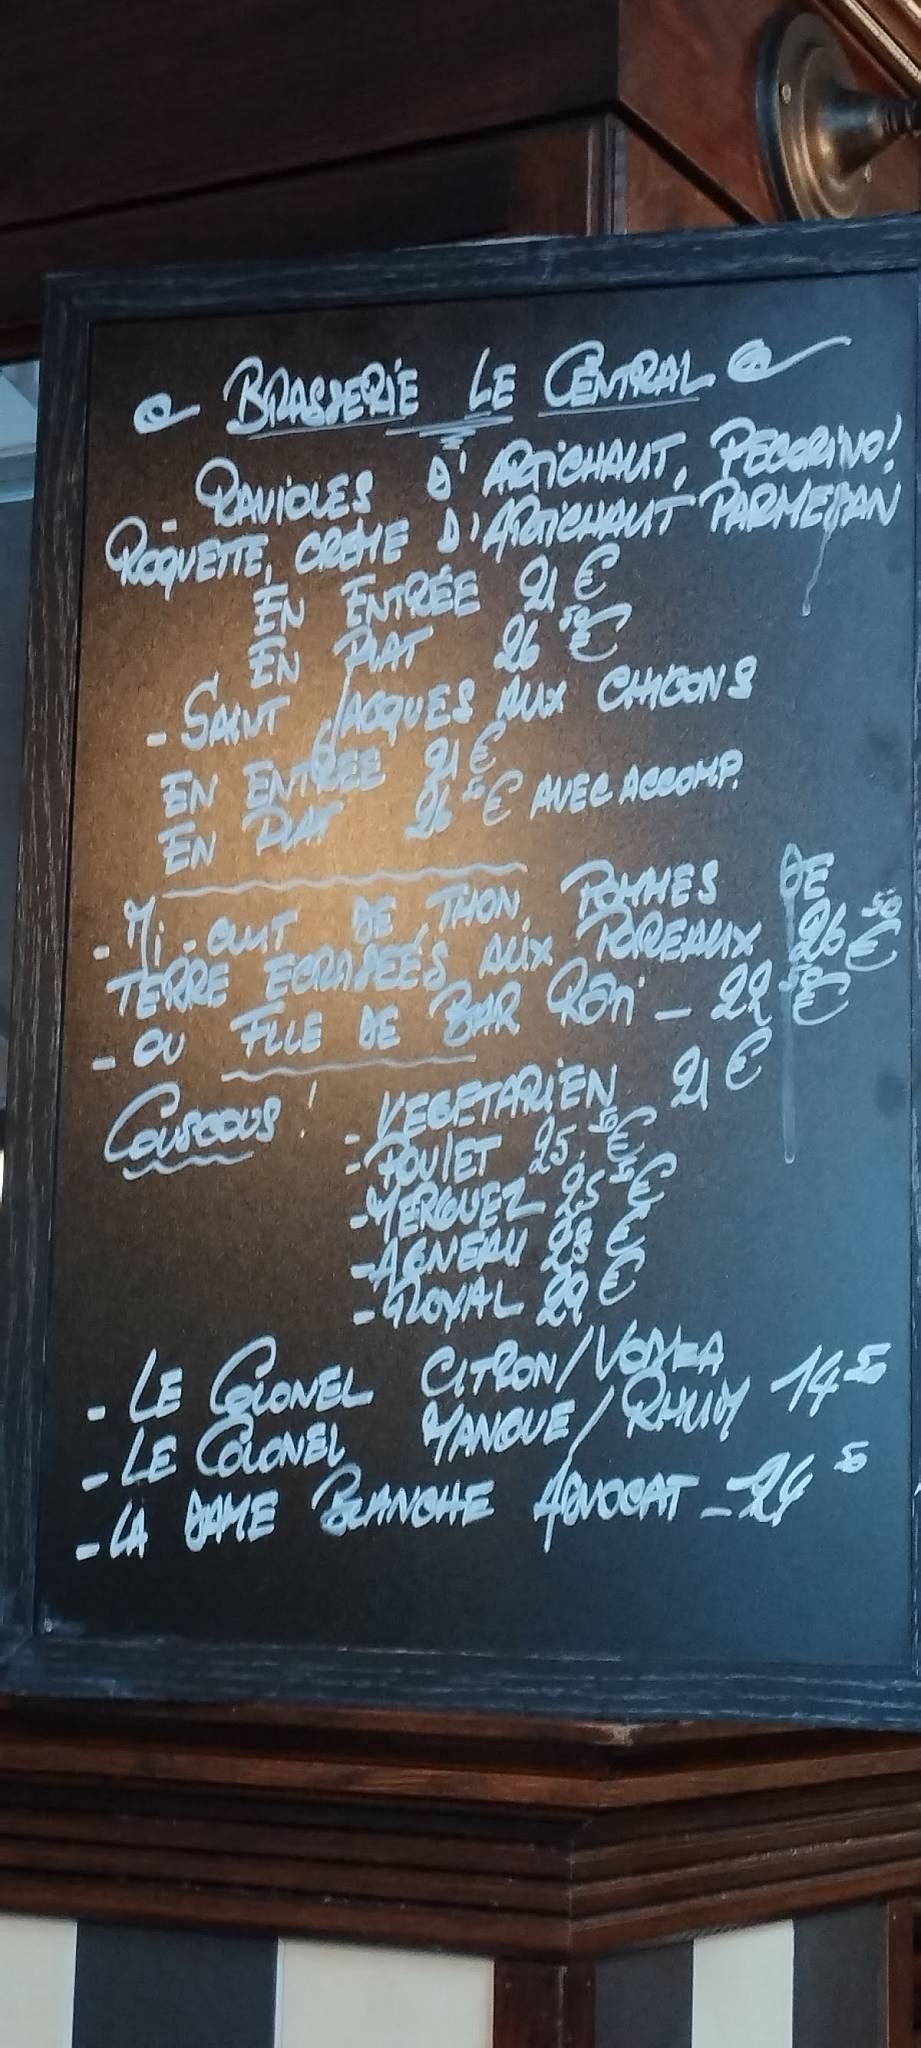 BRASSERIE LE CENTRAL
- RAVIOLES D'ARTICHAUT, PECORINO,
ROQUETTE, CRÈME D'ARTICHAUT PARMESAN
EN ENTRÉE 21 €
EN PLAT 26 50 €
- SAINT JACQUES AUX CHICONS
EN ENTRÉE 21 €
EN PLAT 26 50 € AVEC ACCOMP.
- Mi-CUIT DE THON, POMMES DE
TERRE ECRASÉES AUX POIREAUX 26 50 €
- OU FILE DE BAR RÔTI - 22 50 €
COUSCOUS ! - VEGETARIEN 21 €
- POULET 25.50 €
- MERGUEZ 25 50 €
- AGNEAU 28 €
- ROYAL 29 €
- LE COLONEL CITRON/VODKA
- LE COLONEL MANGUE/RHUM 14 50
- LA DAME BLANCHE ADVOCAT - 50